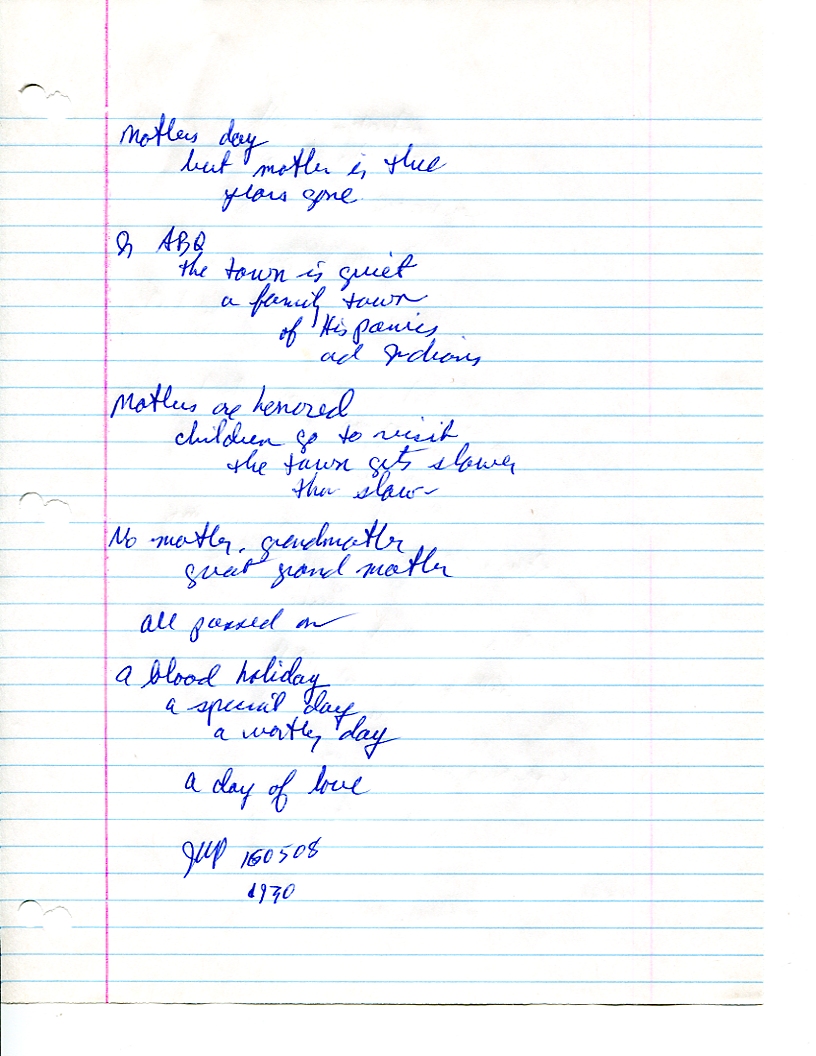 Mothers day
but mother is three
years gone
In ABQ
the town is quiet
a family town
of Hispanics
and Indians
Mothers are honored
children go to visit
the town gets slower
than slow
No mother, grandmother
great grand mother
all passed on
a blood holiday
a special day
a worthy day
a day of love
160508
1930